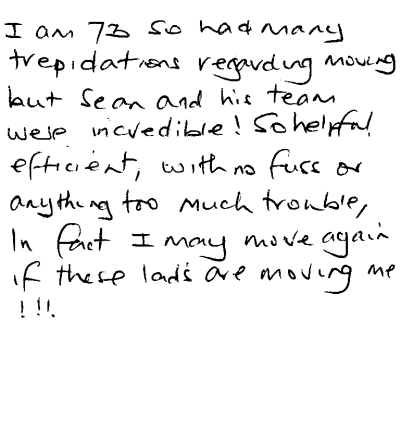 I am 73 so had many
trepidations regarding moving
but Sean and his team
were incredible! So helpful
efficient, with no fuss or
anything too much trouble,
In fact I may move again
if these lads are moving me
!!!